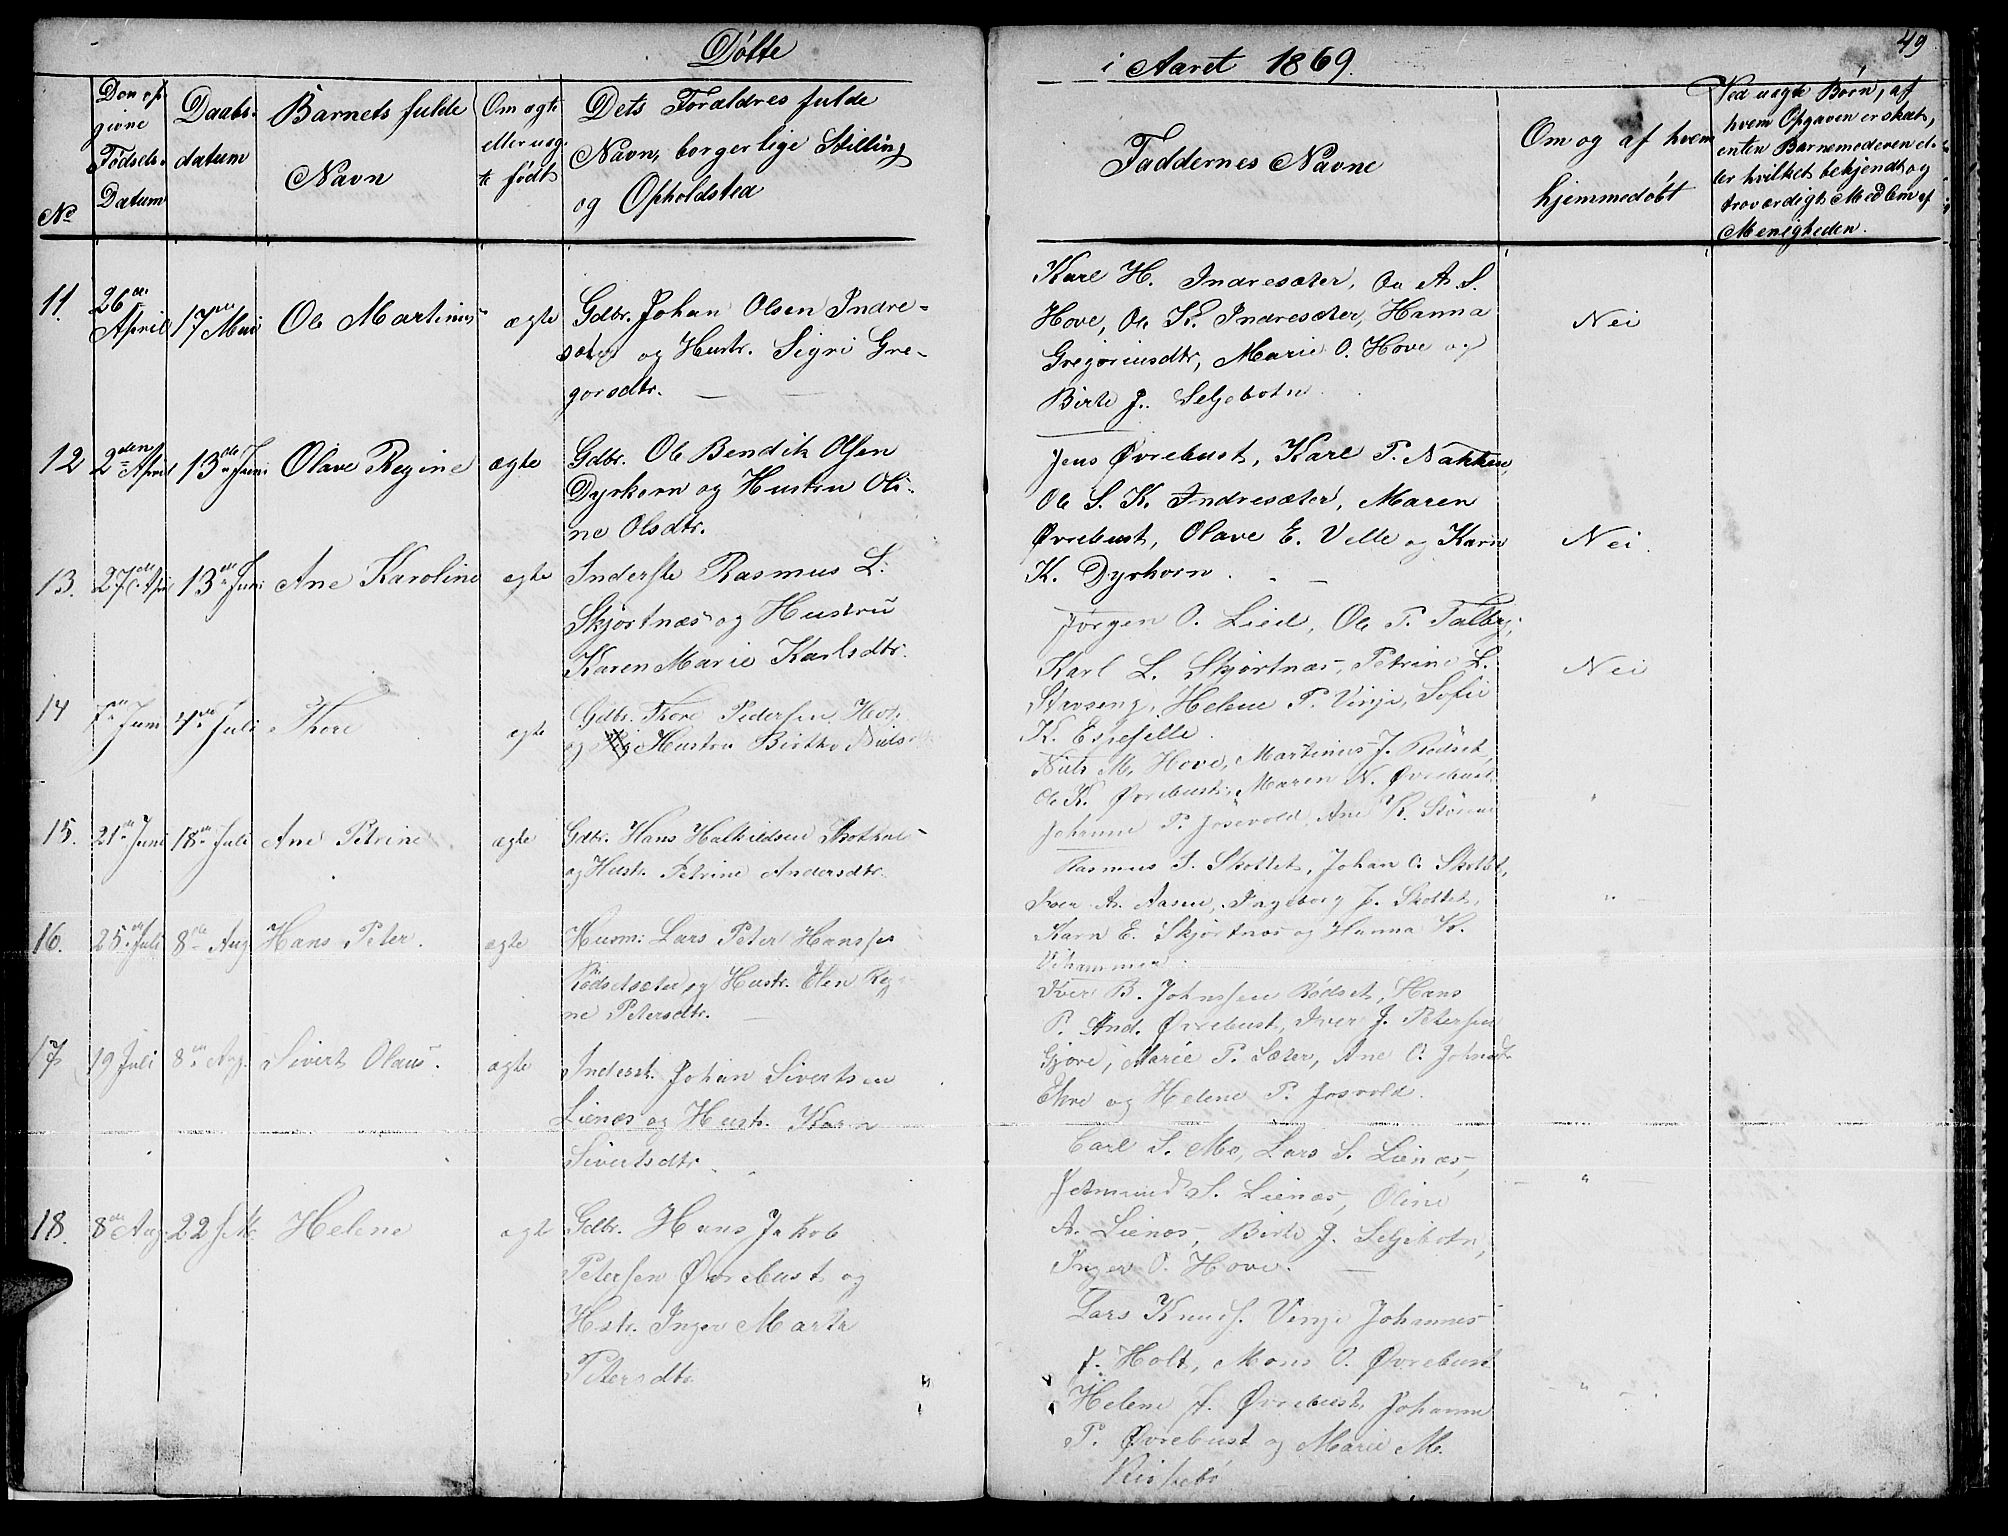 Døbte
i Aaret 1869.
49
No
Den opgivne Fødsels-Datum
Daabsdatum
Barnets fulde Navn
Om ægte eller uægte født
Dets Forældres fulde Navn, borgerlige Stilling og Opholdsted
Faddernes Navne
Om og af hvem hjemmedøbt
Ved uægte Børn, af hvem Opgaven er skat, enten Barnemoderen eller hvilket bekjendt og troværdigt Medlem af Menigheden.
11. 26de April 17de Mai Ole Martinus ægte Gdbr. Johan Olsen Indre-
sæter og Hustr. Sigri Gre-
gorsdtr.
Karl H. Indresæter, Ole A. S.
Hove, Ole K. Indresæter, Hanna
Gregoriusdtr, Marie O. Hove og
Birte J. Seljebotn
Nei
12 2den April 13de Juni Olave Regine ægte Gdbr. Ole Bendik Olsen
Dyrkorn og Hustru Oli-
ne Olsdtr.
Jens Øvrebust, Karl P. Nakken,
Ole S. K. Indresæter, Maren
Øvrebust, Olave E. Velle og Karn
K. Dyrkorn.
Nei.
13. 27de April 13de Juni Ane Karoline ægte Inderste Rasmus L.
Skjortnæs og Hustru
Karen Marie Karlsdtr.
Jørgen O. Lied, Ole P. Talberg,
Karl L. Skjortnæs, Petrine L.
Helene P. Vinje, Sofie
K. Espehlle.
Nei
14 7de Juni 4de Juli Thore ægte Gdbr. Thore Pedersen Hove
og Hustru Birthe Nils
Niels M. Hove, Martinus J. Rødset,
Ole K. Øvrebust, Maren N. Øvrebust
Johanne P. Josevold, Ane K.
"
15. 21de Juni 18de Juli Ane Petrine ægte Gdbr. Hans Halkildsen
og Hustr. Petrine Andersdtr.
Rasmus S. Skottet, Johan O. Skottet,
Iver A. Aasen, Ingeborg J. Skottet,
Karn E. Skjortnæs og Hanna K.
Vihammer.
"
16. 25de Juli 8de Aug Hans Peter. ægte Husm: Lars Peter Hansen
Rødsetsæter og Hustr. Elen Regi-
ne Petersdtr.
Iver B. Johnssen Rødset, Hans
P. And. Øvrebust, Iver J. Petersen
Gjøve, Marie P. Sæter, Ane O. Johnsdtr
og Helene P. Josvold.
17 19 Juli 8de Aug. Sivert Olaus. ægte Inderst. Johan Sivertsen
Lienæs og Hustr. Karn
Sivertsdtr.
Carl S. Mo, Lars S. Lienæs,
S. Lienæs, Oline
A. Lienæs, Birte J. Seljebotn,
Inger O. Hove.
"
18. 8de Aug. 22 Helene ægte Gdbr. Hans Jakob
Petersen Øvrebust og
Hstr. Inger Marta
Petersdtr.
Lars Knuds. Vinje Johannes
J. Holt, Mons O. Øvrebust
Helene J. Øvrebust, Johanne
P. Øvrebust og Marie M.
"